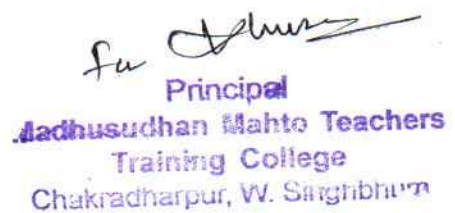 for
Principal
Madhusudhan Mahto Teachers
Training College
Chakradharpur, W. Singhbhum